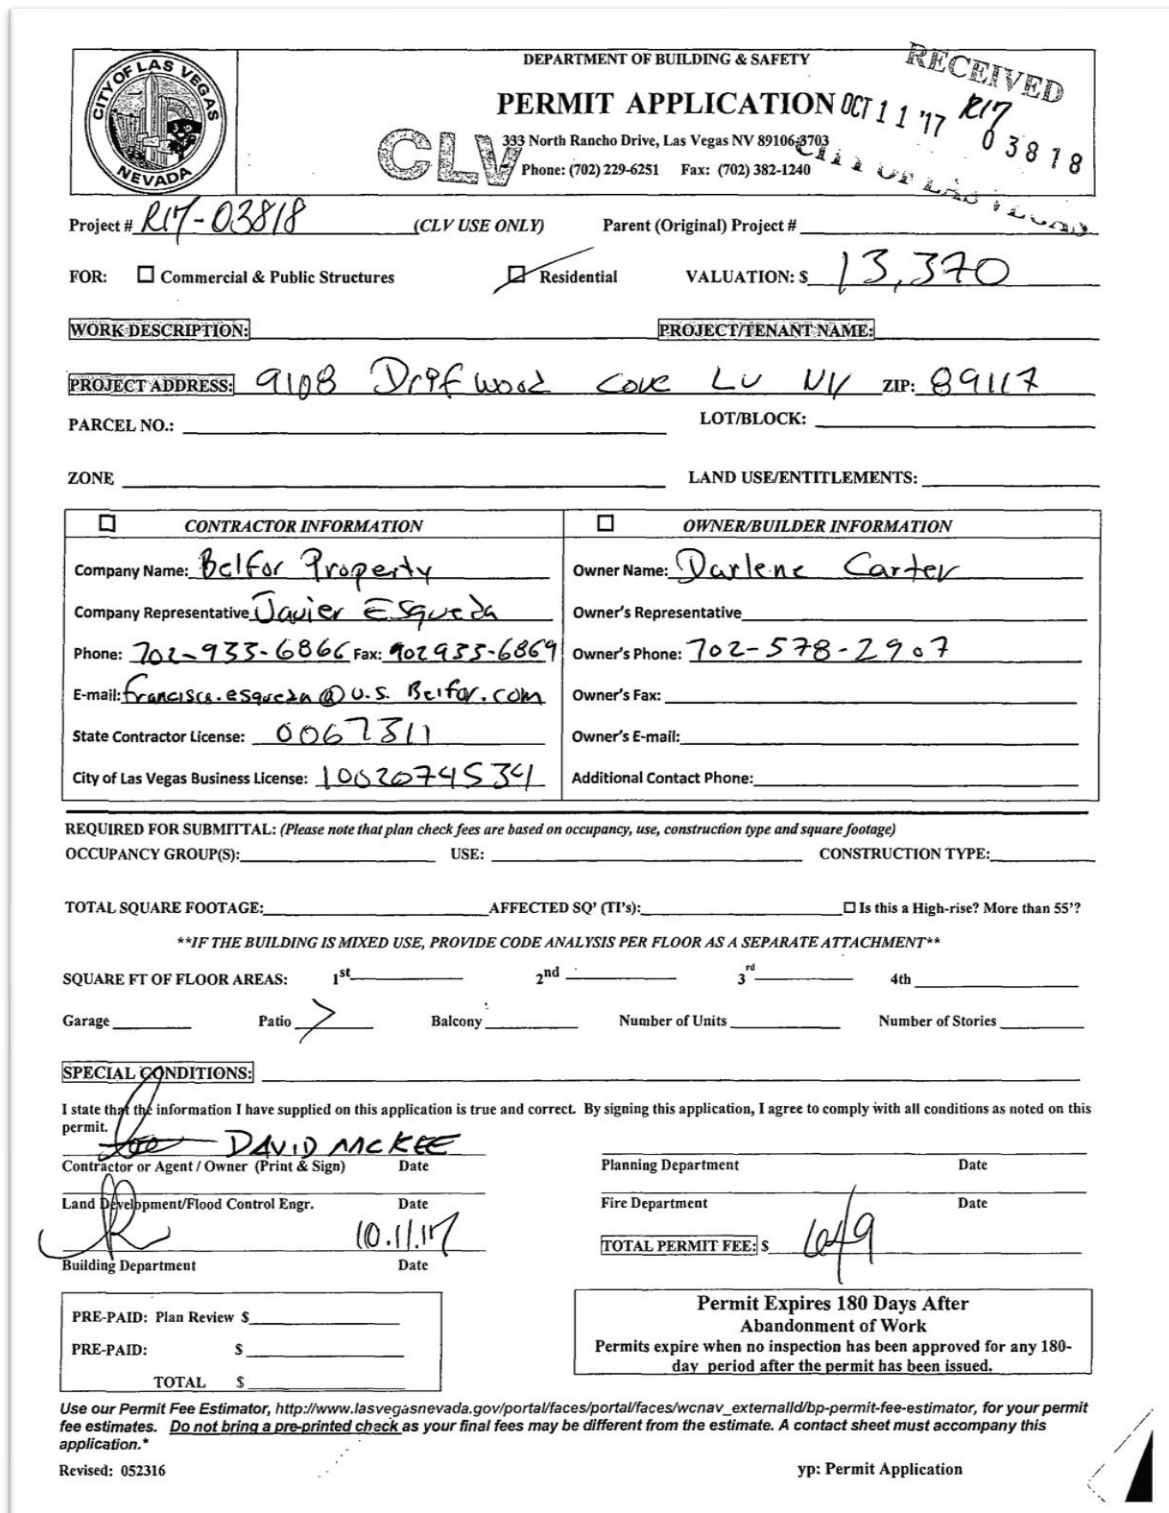 CITY OF LAS VEGAS
NEVADA
DEPARTMENT OF BUILDING & SAFETY
PERMIT APPLICATION
333 North Rancho Drive, Las Vegas NV 89106-3703
Phone: (702) 229-6251 Fax: (702) 382-1240
CLV
RECEIVED
OCT 11 '17
R17
03818
CITY OF LAS VEGAS
Project # R17-03818 (CLV USE ONLY) Parent (Original) Project #
FOR: Commercial & Public Structures Residential VALUATION: $ 13,370
WORK DESCRIPTION: PROJECT/TENANT NAME:
PROJECT ADDRESS: 9108 Drifwood Cove LV NV ZIP: 89117
PARCEL NO.: LOT/BLOCK:
ZONE LAND USE/ENTITLEMENTS:
CONTRACTOR INFORMATION OWNER/BUILDER INFORMATION
Company Name: Belfor Property Owner Name: Darlene Carter
Company Representative Javier Esqueda Owner's Representative
Phone: 702-933-6866 Fax: 902935-6869 Owner's Phone: 702-578-2907
E-mail: @ U.S. Belfor.com Owner's Fax:
State Contractor License: 0067311 Owner's E-mail:
City of Las Vegas Business License: Additional Contact Phone:
REQUIRED FOR SUBMITTAL: (Please note that plan check fees are based on occupancy, use, construction type and square footage)
OCCUPANCY GROUP(S): USE: CONSTRUCTION TYPE:
TOTAL SQUARE FOOTAGE: AFFECTED SQ' (TI's): Is this a High-rise? More than 55'?
**IF THE BUILDING IS MIXED USE, PROVIDE CODE ANALYSIS PER FLOOR AS A SEPARATE ATTACHMENT**
SQUARE FT OF FLOOR AREAS: 1st 2nd 3rd 4th
Garage Patio Balcony Number of Units Number of Stories
SPECIAL CONDITIONS:
I state that the information I have supplied on this application is true and correct. By signing this application, I agree to comply with all conditions as noted on this
permit.
DAVID MCKEE
Contractor or Agent / Owner (Print & Sign) Date Planning Department Date
Land Development/Flood Control Engr. Date Fire Department Date
10.11.17 TOTAL PERMIT FEE: $ 649
Building Department Date
PRE-PAID: Plan Review $
PRE-PAID: $
TOTAL $
Permit Expires 180 Days After
Abandonment of Work
Permits expire when no inspection has been approved for any 180-
day period after the permit has been issued.
Use our Permit Fee Estimator, http://www.lasvegasnevada.gov/portal/faces/portal/faces/wcnav_externalId/bp-permit-fee-estimator, for your permit
fee estimates. Do not bring a pre-printed check as your final fees may be different from the estimate. A contact sheet must accompany this
application.*
Revised: 052316 yp: Permit Application